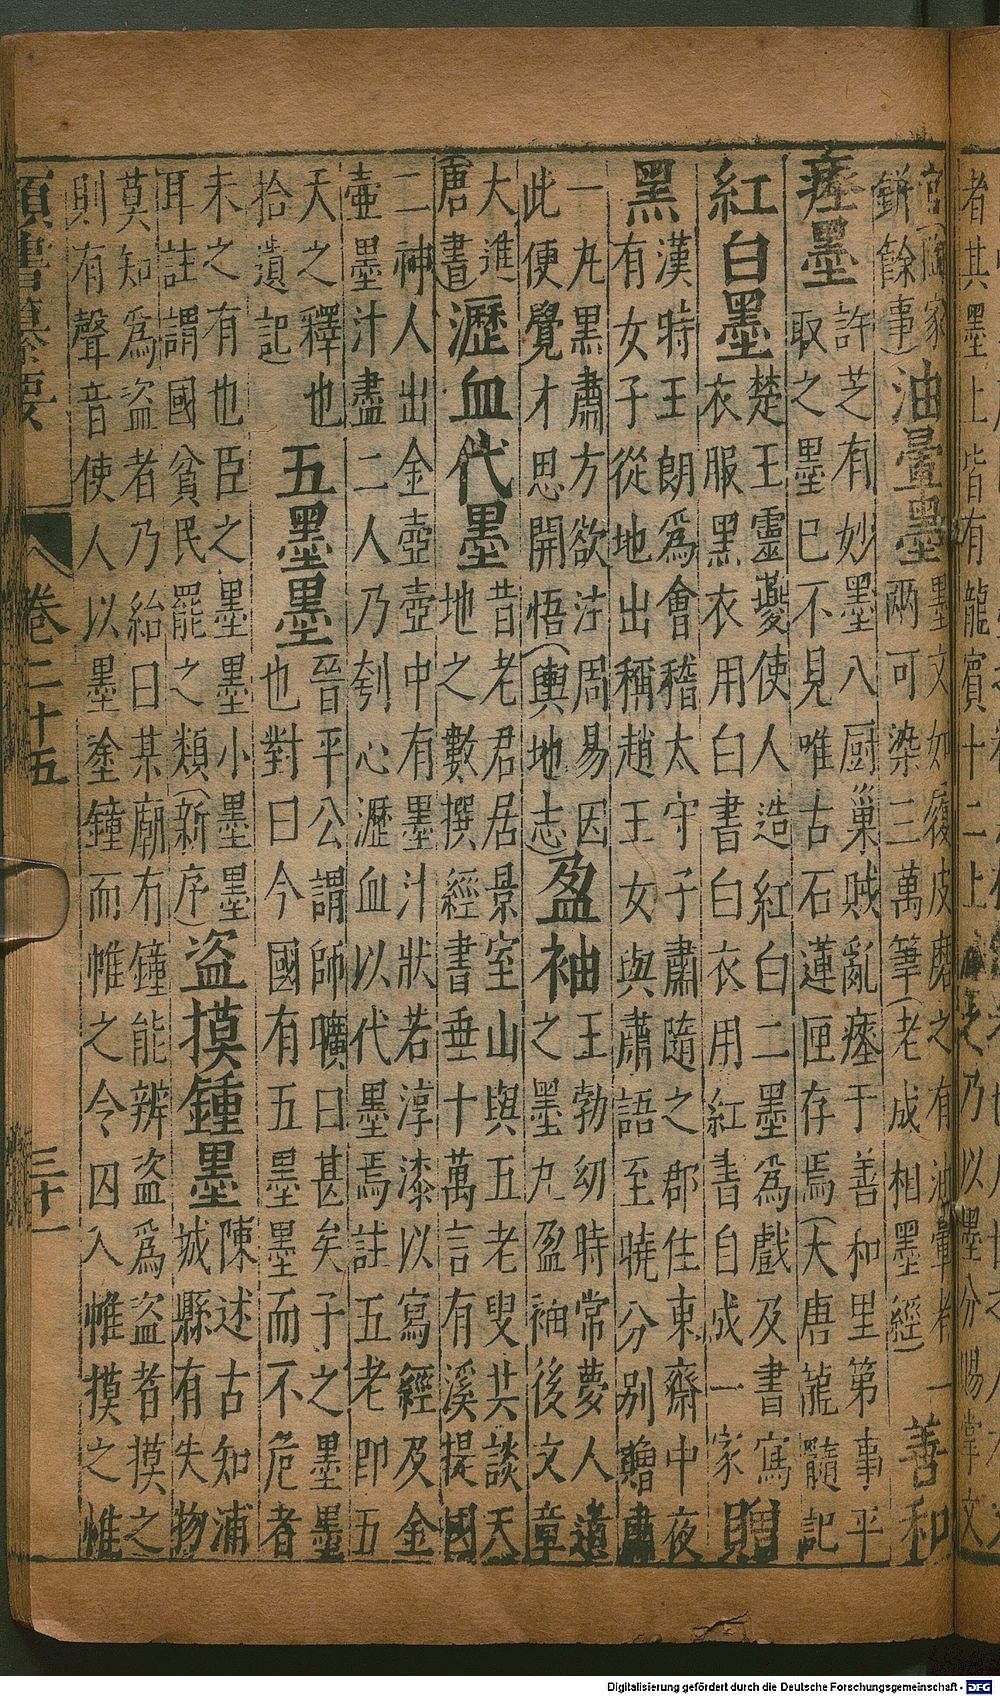 者其墨上皆有龍賓十二上乃以墨分賜掌文
家
餅餘事)
油暈墨
墨文如履皮磨之有油暈者一
兩可染三萬筆(老成相墨經)
善和
瘞墨
許芝有妙墨八厨巢賊亂瘞于善和里第事平
取之墨已不見唯古石蓮匣存焉(大唐龍髓記
紅白墨
楚王靈夔使人造紅白二墨為戲及書寫
衣服黑衣用白書白衣用紅書自成一家
贈
黑
漢時王朗為會稽太守子肅隨之郡住東齋中夜
有女子從地出稱趙王女與肅語至曉分别贈肅
一丸黒肅方欲注周易因
此便覺才思開悟(輿地志)
盈袖
王勃幼時常夢人遺
之墨丸盈袖後文章
大進
唐書)
瀝血代墨
昔老君居景室山與五老叟共談天
地之數撰經書垂十萬言有溪提國
二神人出金壺壺中有墨汁狀若淳漆以寫經及金
壷墨汁盡二人乃刳心瀝血以代墨焉註五老即五
天之釋也
拾遺記
五墨墨
晉平公謂師曠曰甚矣子之墨墨
也對曰今國有五墨墨而不危者
未之有也臣之墨墨小墨墨
耳註謂國貧民罷之類(新序)
盗摸鍾墨
陳述古知浦
城縣有失物
莫知為盗者乃紿曰某廟有鐘能辨盗為盗者摸之
則有聲音使人以墨塗鐘而帷之令囚入帷摸之惟
類書纂要 卷二十五 三十一
Digitalisierung gefördert durch die Deutsche Forschungsgemeinschaft - DFG